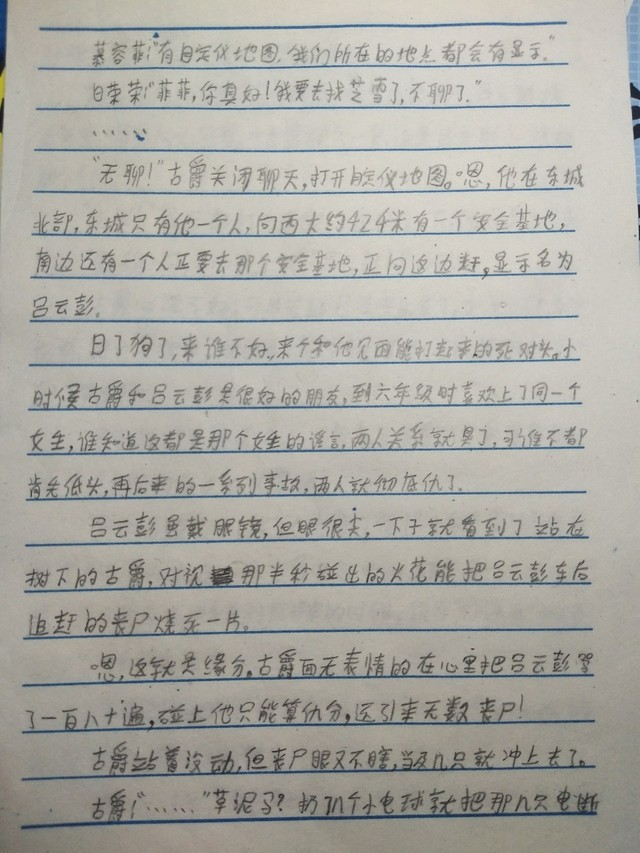 慕容菲:“有自定仪地图,我们所在的地点都会有显示。”
白荣荣:“菲菲,你真好!我要去找芝雪了,不聊了。”
……
“无聊!”古爵关闭聊天,打开自定仪地图。嗯,他在东城
北部,东城只有他一个人,向西大约424米有一个安全基地,
南边还有一个人正要去那个安全基地,正向这边赶,显示名为
吕云彭。
日了狗了,来谁不好,来个和他见面能打起来的死对头。小
时候古爵和吕云彭是很好的朋友,到六年级时喜欢上了同一个
女生,谁知道这都是那个女生的谎言,两人关系就臭了,可谁不都
肯先低头,再后来的一系列事故,两人就彻底仇了。
吕云彭虽戴眼镜,但眼很尖,一下子就看到了站在
树下的古爵,对视那半秒碰出的火花能把吕云彭车后
追赶的丧尸烧死一片。
嗯,这就是缘分。古爵面无表情的在心里把吕云彭骂
了一百八十遍,碰上他只能算仇分,还引来无数丧尸!
古爵站着没动,但丧尸眼又不瞎,当及几只就冲上去了。
古爵:“……”草泥马?扔几个小电球就把那几只电断